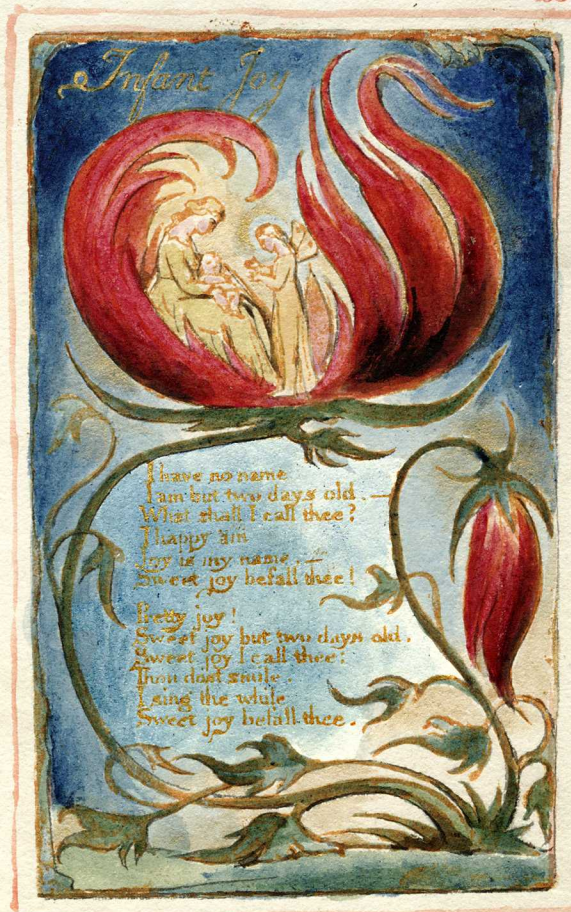 Infant Joy
I have no name
I am but two days old. —
What shall I call thee?
I happy am
Joy is my name, —
Sweet joy befall thee!
Pretty joy!
Sweet joy but two days old.
Sweet joy I call thee:
Thou dost smile.
I sing the while
Sweet joy befall thee.